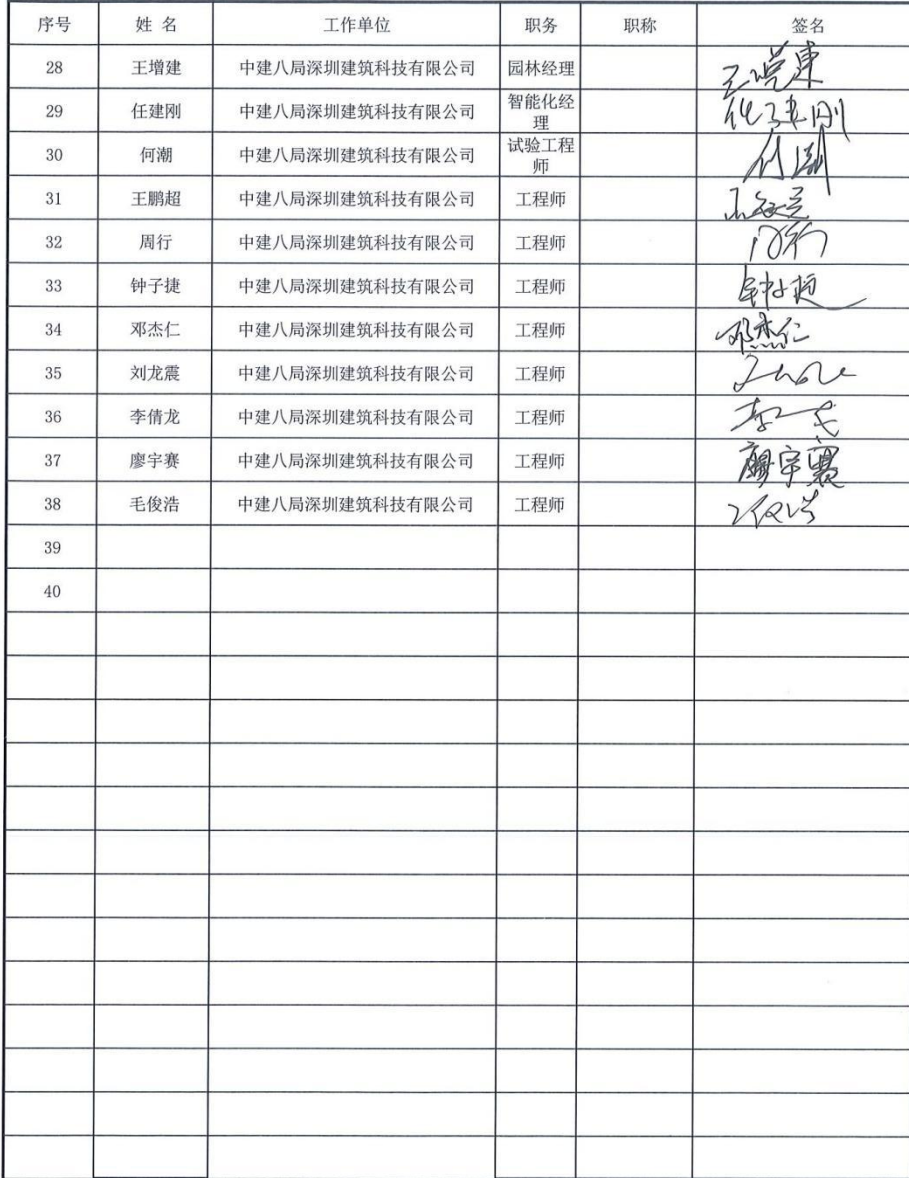 序号 姓 名 工作单位 职务 职称 签名
28 王增建 中建八局深圳建筑科技有限公司 园林经理
29 任建刚 中建八局深圳建筑科技有限公司 智能化经
理
30 何潮 中建八局深圳建筑科技有限公司 试验工程
师 何潮
31 王鹏超 中建八局深圳建筑科技有限公司 工程师
32 周行 中建八局深圳建筑科技有限公司 工程师 周行
33 钟子捷 中建八局深圳建筑科技有限公司 工程师 钟子捷
34 邓杰仁 中建八局深圳建筑科技有限公司 工程师 邓杰仁
35 刘龙震 中建八局深圳建筑科技有限公司 工程师
36 李倩龙 中建八局深圳建筑科技有限公司 工程师
37 廖宇赛 中建八局深圳建筑科技有限公司 工程师 廖宇赛
38 毛俊浩 中建八局深圳建筑科技有限公司 工程师
39
40